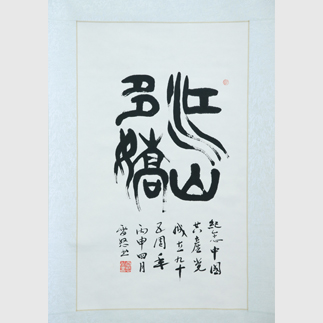 江山
多嬌
紀念中国
共產党
成立九十
五周年
丙申四月